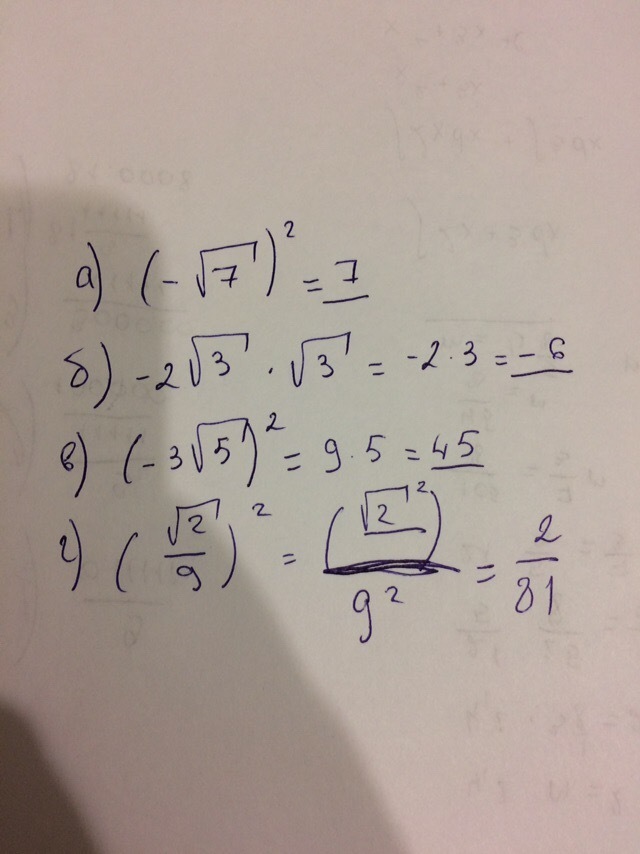 а) (-√7)² = 7
б) -2√3 · √3 = -2·3 = -6
в) (-3√5)² = 9·5 = 45
г) (√2/9)² = (√2²)/9² = 2/81